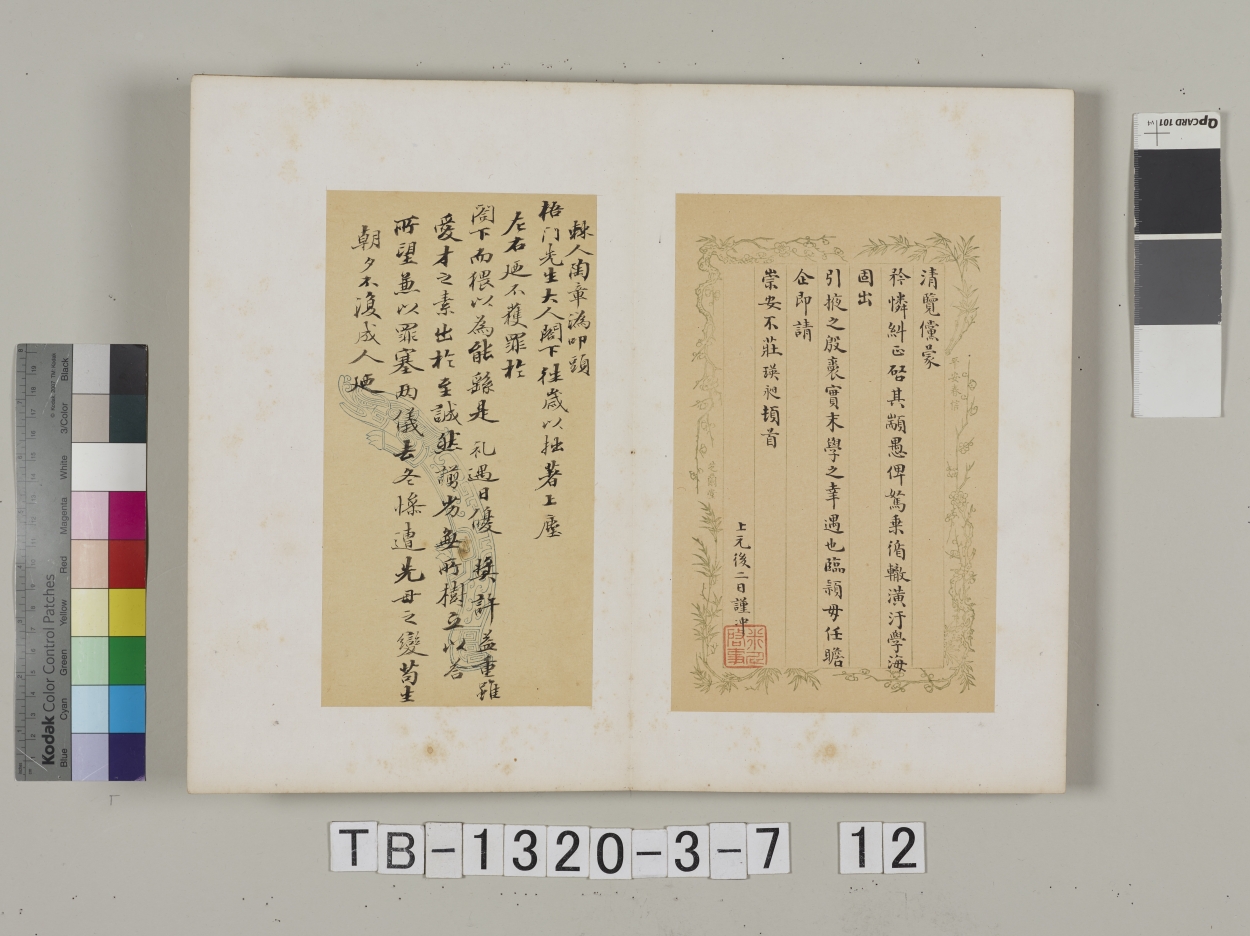 清覽儻蒙
矜憐糾正啓其顓愚俾駑乘循轍潢汙學海
固出
引掖之殷裹實末學之幸遇也臨穎毋任瞻
企即請
崇安不莊瑛昶頓首
上元後二日謹沖
棘人陶章溈叩頭
梧门先生大人閣下往歲以拙著上塵
左右廼不獲罪於
閤下而猥以為能繇是礼遇日優獎許益重雖
愛才之素出於至誠然謭劣無所樹立以答
所望兼以罪塞两儀去冬慘遭先母之變苟生
朝夕不復成人廼
QPCARD 101 v4
Kodak Color Control Patches
© Kodak 2007
Blue Cyan Green Yellow Red Magenta White 3/Color Black
TB-1320-3-7 12